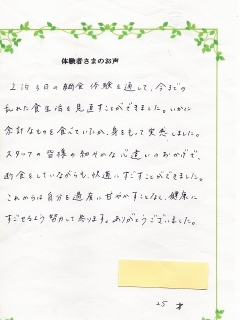 体験者さまのお声
2泊3日の断食体験を通して、今までの
乱れた食生活を見直すことができました。いかに
余計なものを食べていたか、身をもって実感しました。
スタッフの皆様の細やかな心遣いのおかげで、
断食をしていながらも、快適にすごすことができました。
これからは自分を過度に甘やかすことなく、健康に
すごせるよう努力して参ります。ありがとうございました。
25 才